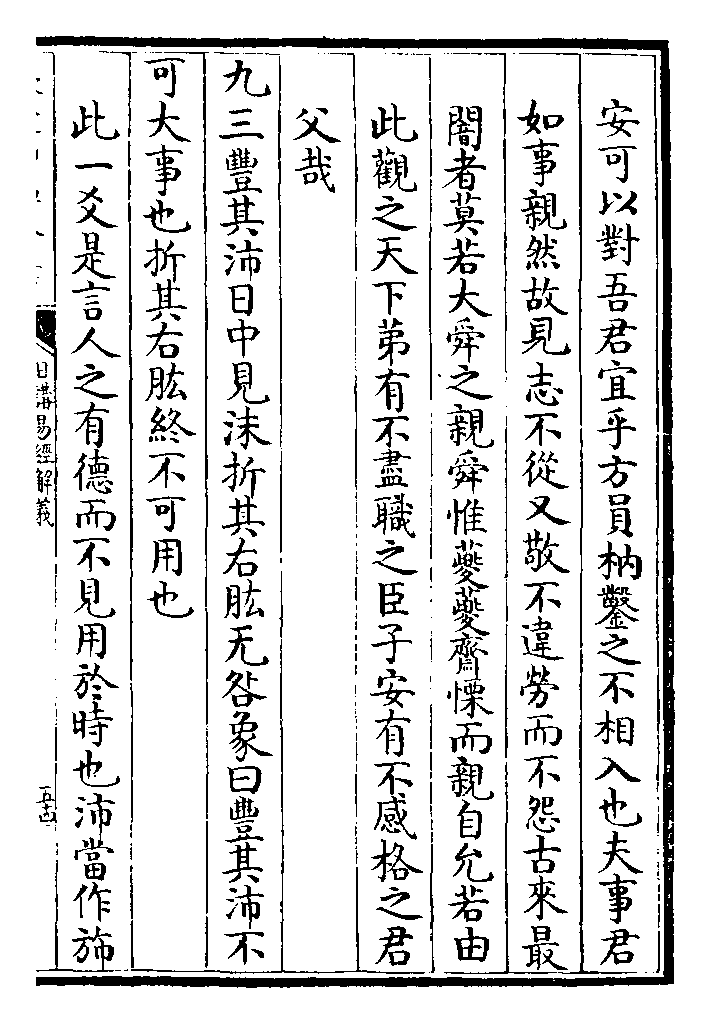 安可以對吾君宜乎方員枘鑿之不相入也夫事君
如事親然故見志不從又敬不違勞而不怨古來最
闇者莫若大舜之親舜惟夔夔齋慄而親自允若由
此觀之天下苐有不盡職之臣子安有不感格之君
父哉
九三豐其沛日中見沬折其右肱无咎象曰豐其沛不
可大事也折其右肱終不可用也
此一爻是言人之有德而不見用於時也沛當作斾
日講易經解義
五十四